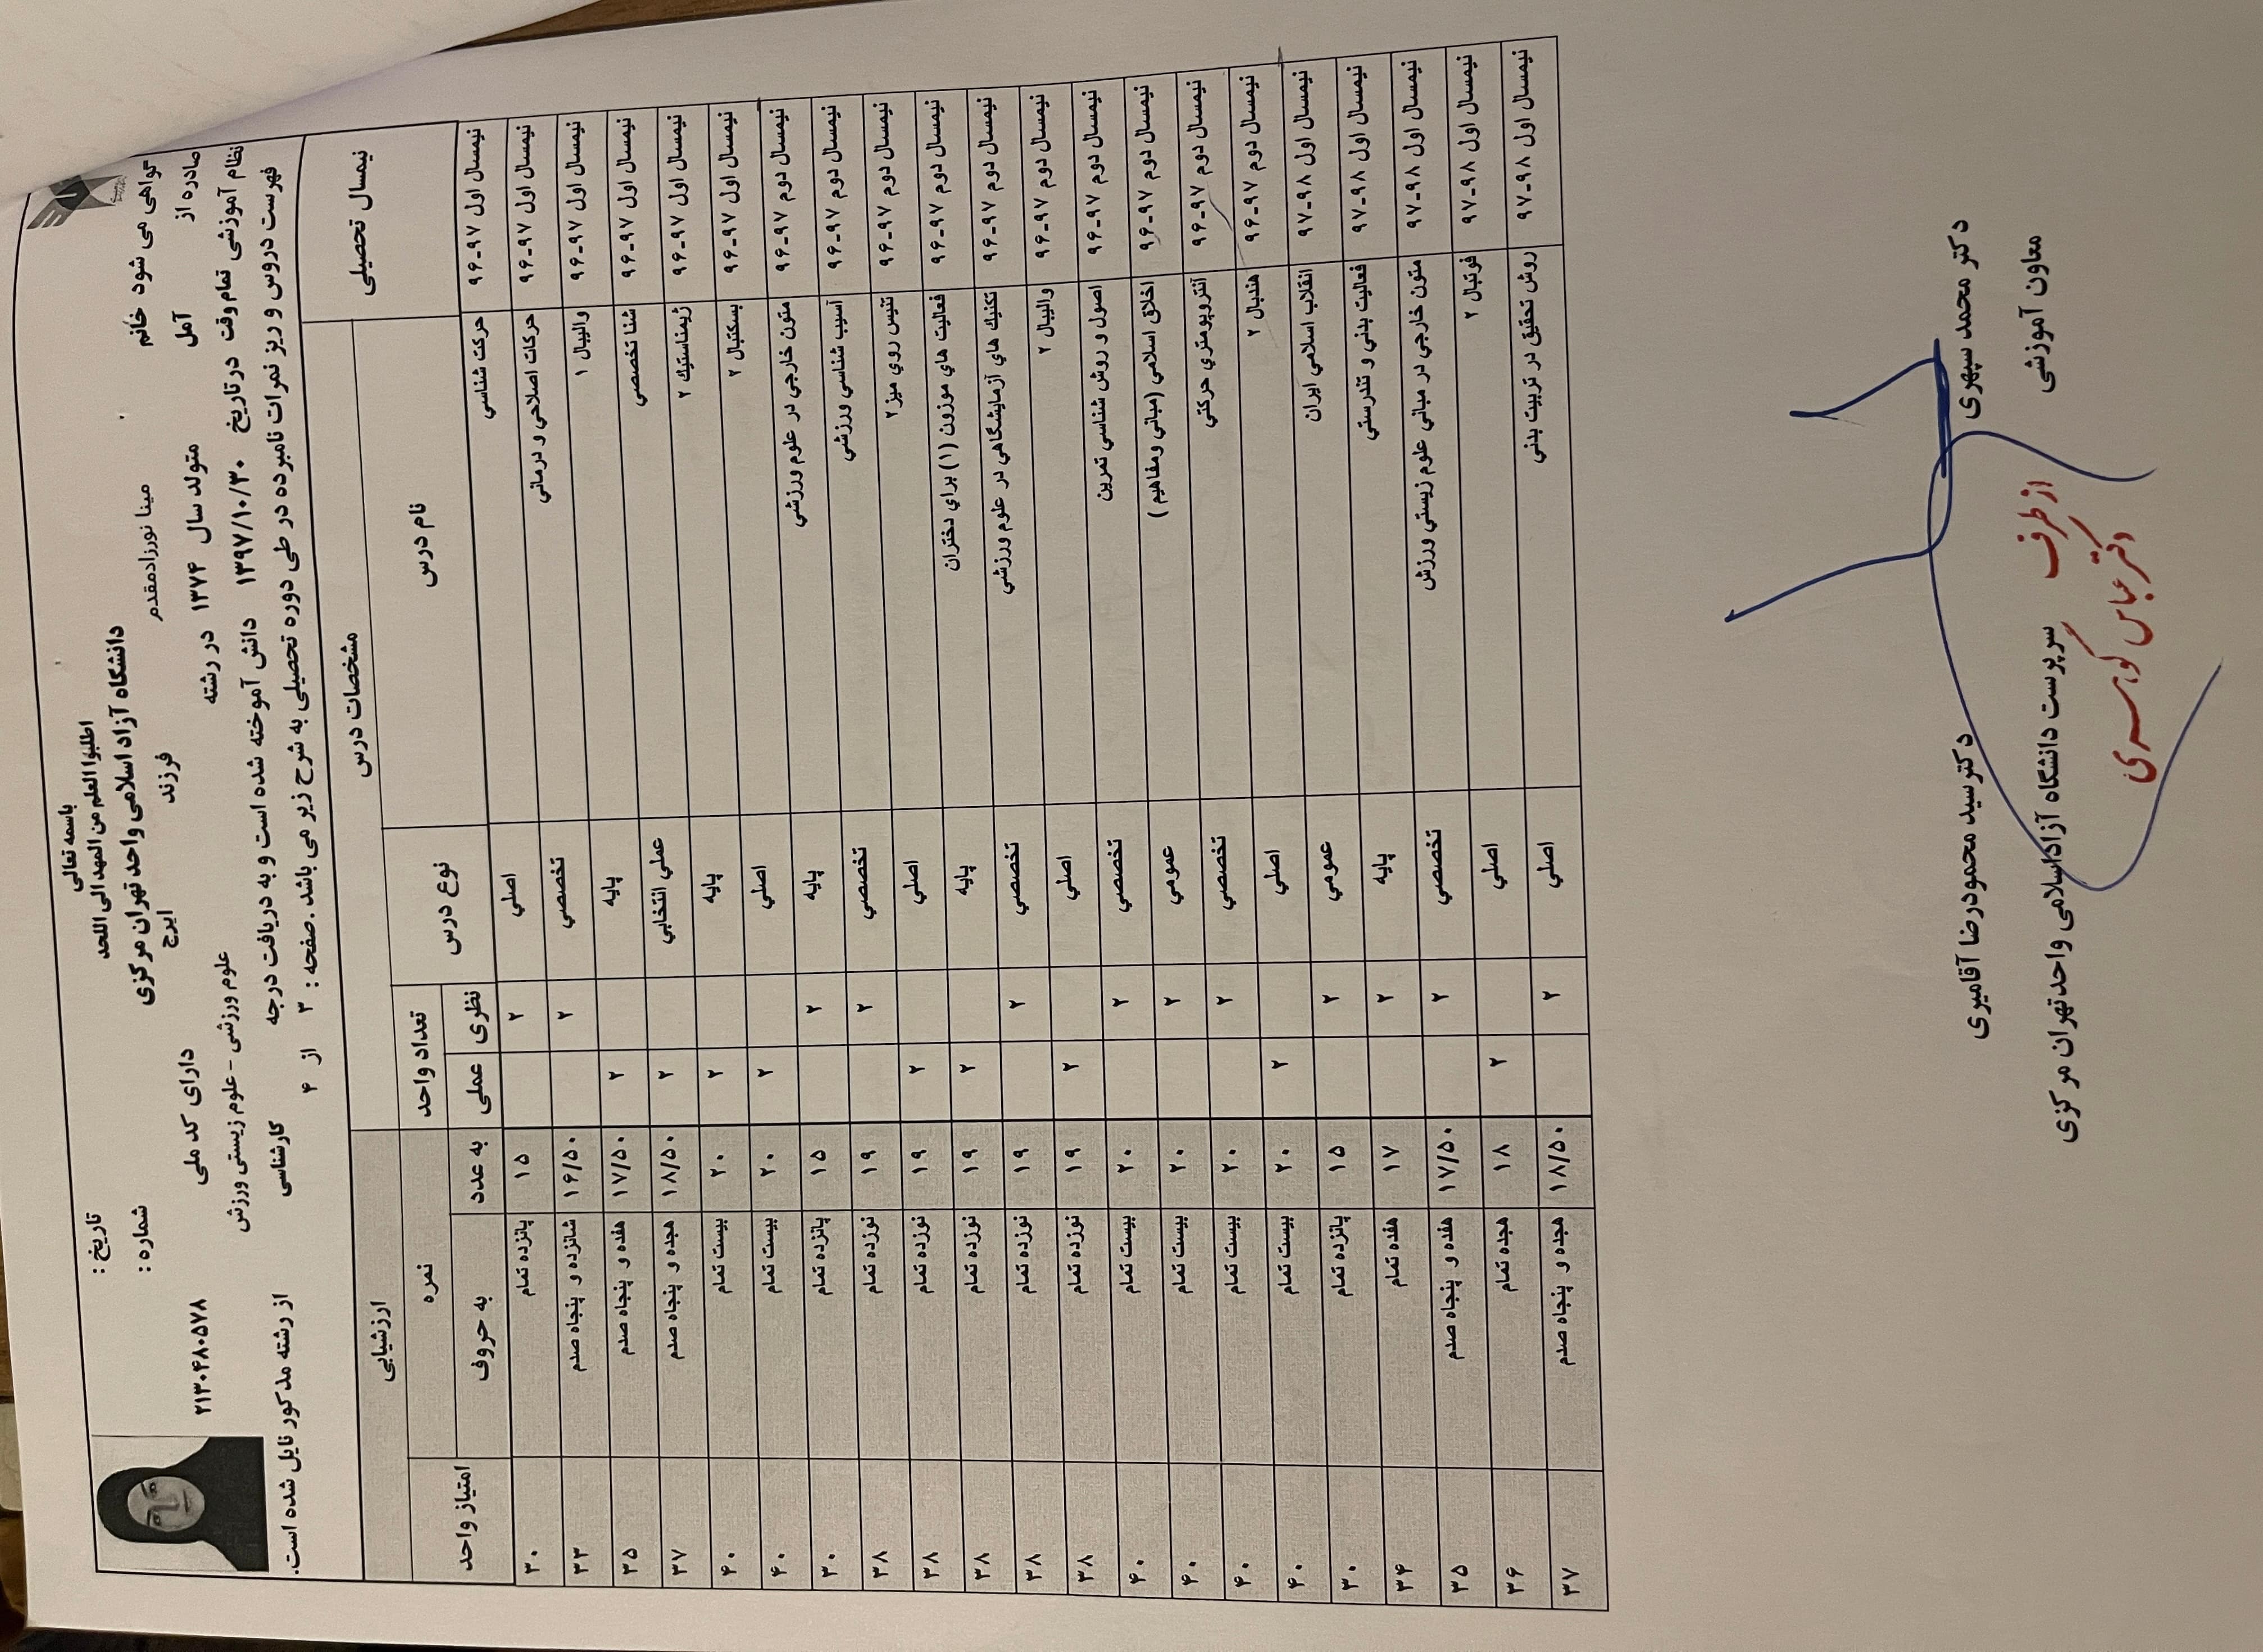 باسمه تعالی
اطلبوا العلم من المهد الی اللحد
دانشگاه آزاد اسلامی واحد تهران مرکزی
تاریخ :
شماره :
گواهی می شود خانم مینا نورزادمقدم فرزند ایرج دارای کد ملی ۲۱۳۰۴۸۰۵۷۸
صادره از آمل متولد سال ۱۳۷۴ در رشته علوم ورزشی - علوم زیستی ورزش
نظام آموزشی تمام وقت در تاریخ ۱۳۹۷/۱۰/۳۰ دانش آموخته شده است و به دریافت درجه کارشناسی از رشته مذکور نایل شده است.
فهرست دروس و ریز نمرات نامبرده در طی دوره تحصیلی به شرح زیر می باشد .صفحه : ۳ از ۴
نیمسال تحصیلی مشخصات درس ارزشیابی
نام درس نوع درس تعداد واحد نمره امتیاز واحد
نظری عملی به عدد به حروف
نیمسال اول ۹۷-۹۶ حرکت شناسي اصلي ۲ ۱۵ پانزده تمام ۳۰
نیمسال اول ۹۷-۹۶ حرکات اصلاحي و درماني تخصصي ۲ ۱۶/۵۰ شانزده و پنجاه صدم ۳۳
نیمسال اول ۹۷-۹۶ واليبال ۱ پايه ۲ ۱۷/۵۰ هفده و پنجاه صدم ۳۵
نیمسال اول ۹۷-۹۶ شنا تخصصي عملي انتخابي ۲ ۱۸/۵۰ هجده و پنجاه صدم ۳۷
نیمسال اول ۹۷-۹۶ ژيمناستيك ۲ پايه ۲ ۲۰ بیست تمام ۴۰
نیمسال اول ۹۷-۹۶ بسکتبال ۲ اصلي ۲ ۲۰ بیست تمام ۴۰
نیمسال دوم ۹۷-۹۶ متون خارجي در علوم ورزشي پايه ۲ ۱۵ پانزده تمام ۳۰
نیمسال دوم ۹۷-۹۶ آسيب شناسي ورزشي تخصصي ۲ ۱۹ نوزده تمام ۳۸
نیمسال دوم ۹۷-۹۶ تنيس روي ميز۲ اصلي ۲ ۱۹ نوزده تمام ۳۸
نیمسال دوم ۹۷-۹۶ فعاليت هاي موزون (۱) براي دختران پايه ۲ ۱۹ نوزده تمام ۳۸
نیمسال دوم ۹۷-۹۶ تکنيك هاي آزمايشگاهي در علوم ورزشي تخصصي ۲ ۱۹ نوزده تمام ۳۸
نیمسال دوم ۹۷-۹۶ واليبال ۲ اصلي ۲ ۱۹ نوزده تمام ۳۸
نیمسال دوم ۹۷-۹۶ اصول و روش شناسي تمرين تخصصي ۲ ۲۰ بیست تمام ۴۰
نیمسال دوم ۹۷-۹۶ اخلاق اسلامي (مباني ومفاهيم ) عمومي ۲ ۲۰ بیست تمام ۴۰
نیمسال دوم ۹۷-۹۶ آنتروپومتري حرکتي تخصصي ۲ ۲۰ بیست تمام ۴۰
نیمسال دوم ۹۷-۹۶ هندبال ۲ اصلي ۲ ۲۰ بیست تمام ۴۰
نیمسال اول ۹۸-۹۷ انقلاب اسلامي ايران عمومي ۲ ۱۵ پانزده تمام ۳۰
نیمسال اول ۹۸-۹۷ فعاليت بدني و تندرستي پايه ۲ ۱۷ هفده تمام ۳۴
نیمسال اول ۹۸-۹۷ متون خارجي در مباني علوم زيستي ورزش تخصصي ۲ ۱۷/۵۰ هفده و پنجاه صدم ۳۵
نیمسال اول ۹۸-۹۷ فوتبال ۲ اصلي ۲ ۱۸ هجده تمام ۳۶
نیمسال اول ۹۸-۹۷ روش تحقيق در تربيت بدني اصلي ۲ ۱۸/۵۰ هجده و پنجاه صدم ۳۷
دکتر محمد سپهری دکتر سید محمودرضا آقامیری
معاون آموزشی سرپرست دانشگاه آزاداسلامی واحدتهران مرکزی
از طرف
دکتر عباس کوهسری